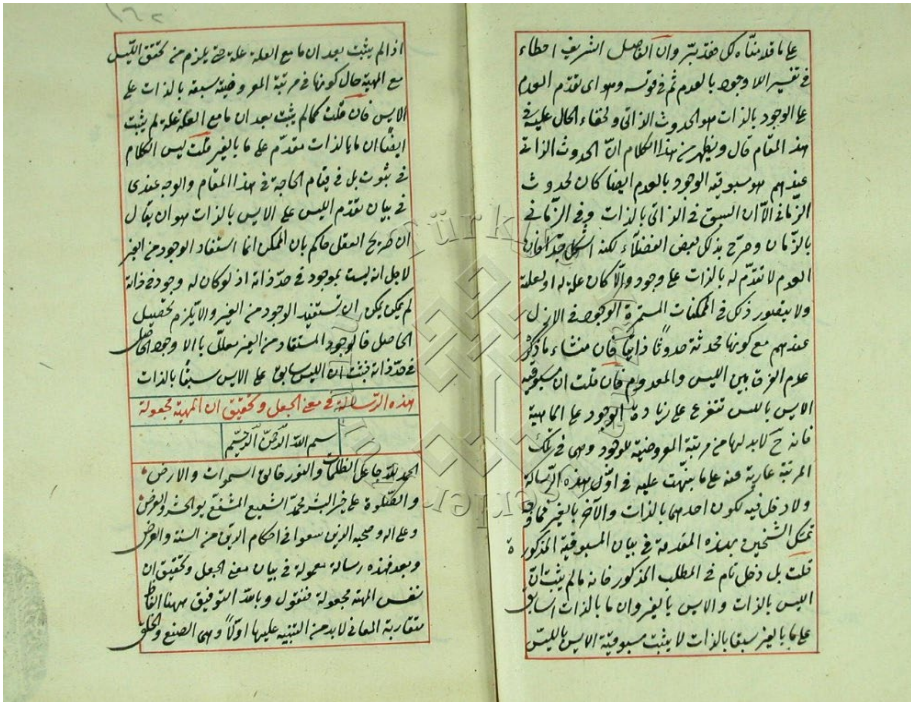 على ما قدمناه كل متدبر وان الفاضل الشريف اخطاء
في تفسير اللاوجود بالعدم ثم في قوله وهو اي تقدم العدم
على الوجود بالذات هو الحدوث الذاتي ولخفاء الحال عليه في
هذا المقام قال ويظهر من هذا الكلام ان الحدوث الذاتي
عندهم هو مسبوقية الوجود بالعدم ايضا كان لحدوث
الزماني الا ان السبق في الذاتي بالذات وفي الزماني
بالزمان وصرح بذلك بعض الفضلاء لكنه اشكل جدا فان
العدم لا تقدم له بالذات على وجود والا كان علة له او لعلته
ولا يتصور ذلك في الممكنات المستمرة الوجود في الازل
عندهم مع كونها محدثة حدوثا ذاتيا فان منشاء ما ذكر
عدم الفرق بين الليس والمعدوم فان قلت ان مسبوقية
الايس بالليس تتفرع على زيادة الوجود على الماهية
فانه ح لابد لها من مرتبة المعروضية للوجود وهي في تلك
المرتبة عارية عنه على ما نبهت عليه في اول هذه الرسالة
ولا دخل فيه لكون احدهما بالذات والآخر بالغير فما وجه
تمسك الشيخين بهذه المقدمة في بيان المسبوقية المذكورة
قلت بل دخل تام في المطلب المذكور فانه ما لم يثبت ان
الليس بالذات والايس بالغير وان ما بالذات سابق
على ما بالغير سبقا بالذات لا يثبت مسبوقية الايس بالليس
١٦٢
اذا لم يثبت بعد ان ما مع العلة علة حتى يلزم من تحقق الليس
مع المهية حال كونها في مرتبة المعروضية سبقه بالذات على
الايس فان قلت كما لم يثبت بعد ان ما مع العلة علة لم يثبت
ايضا ان ما بالذات مقدم على ما بالغير قلت ليس الكلام
في ثبوته بل في قيام الحاجة في هذا المقام والوجه عندي
في بيان تقدم الليس على الايس بالذات هو ان يقال
ان صريح العقل حاكم بان الممكن انما استفاد الوجود من الغير
لاجل انه ليست بموجود في حد ذاته اذ لو كان له وجود في ذاته
لم يكن يمكن ان تستفيد الوجود من الغير والا يلزم تحصيل
الحاصل فالوجود المستفاد من الغير معلل باللاوجود الحاصل
في حد ذاته فثبت ان الليس سابق على الايس سبقا بالذات
هذه الرسالة في معنى الجعل وتحقيق ان المهية مجعولة
بسم الله الرحمن الرحيم
الحمد لله جاعل الظلمات والنور خالق السموات والارض
والصلوة على خير البشر محمد الشفيع المشفع يوم الحشر والعرض
وعلى اله وصحبه الذين سعوا في احكام الدين من السنة والفرض
وبعد فهذه رسالة معمولة في بيان معنى الجعل وتحقيق ان
نفس المهية مجعولة فنقول وبالله التوفيق ههنا الفاظ
متقاربة المعاني لابد من التنبيه عليها اولا وهي الصنع والخلق